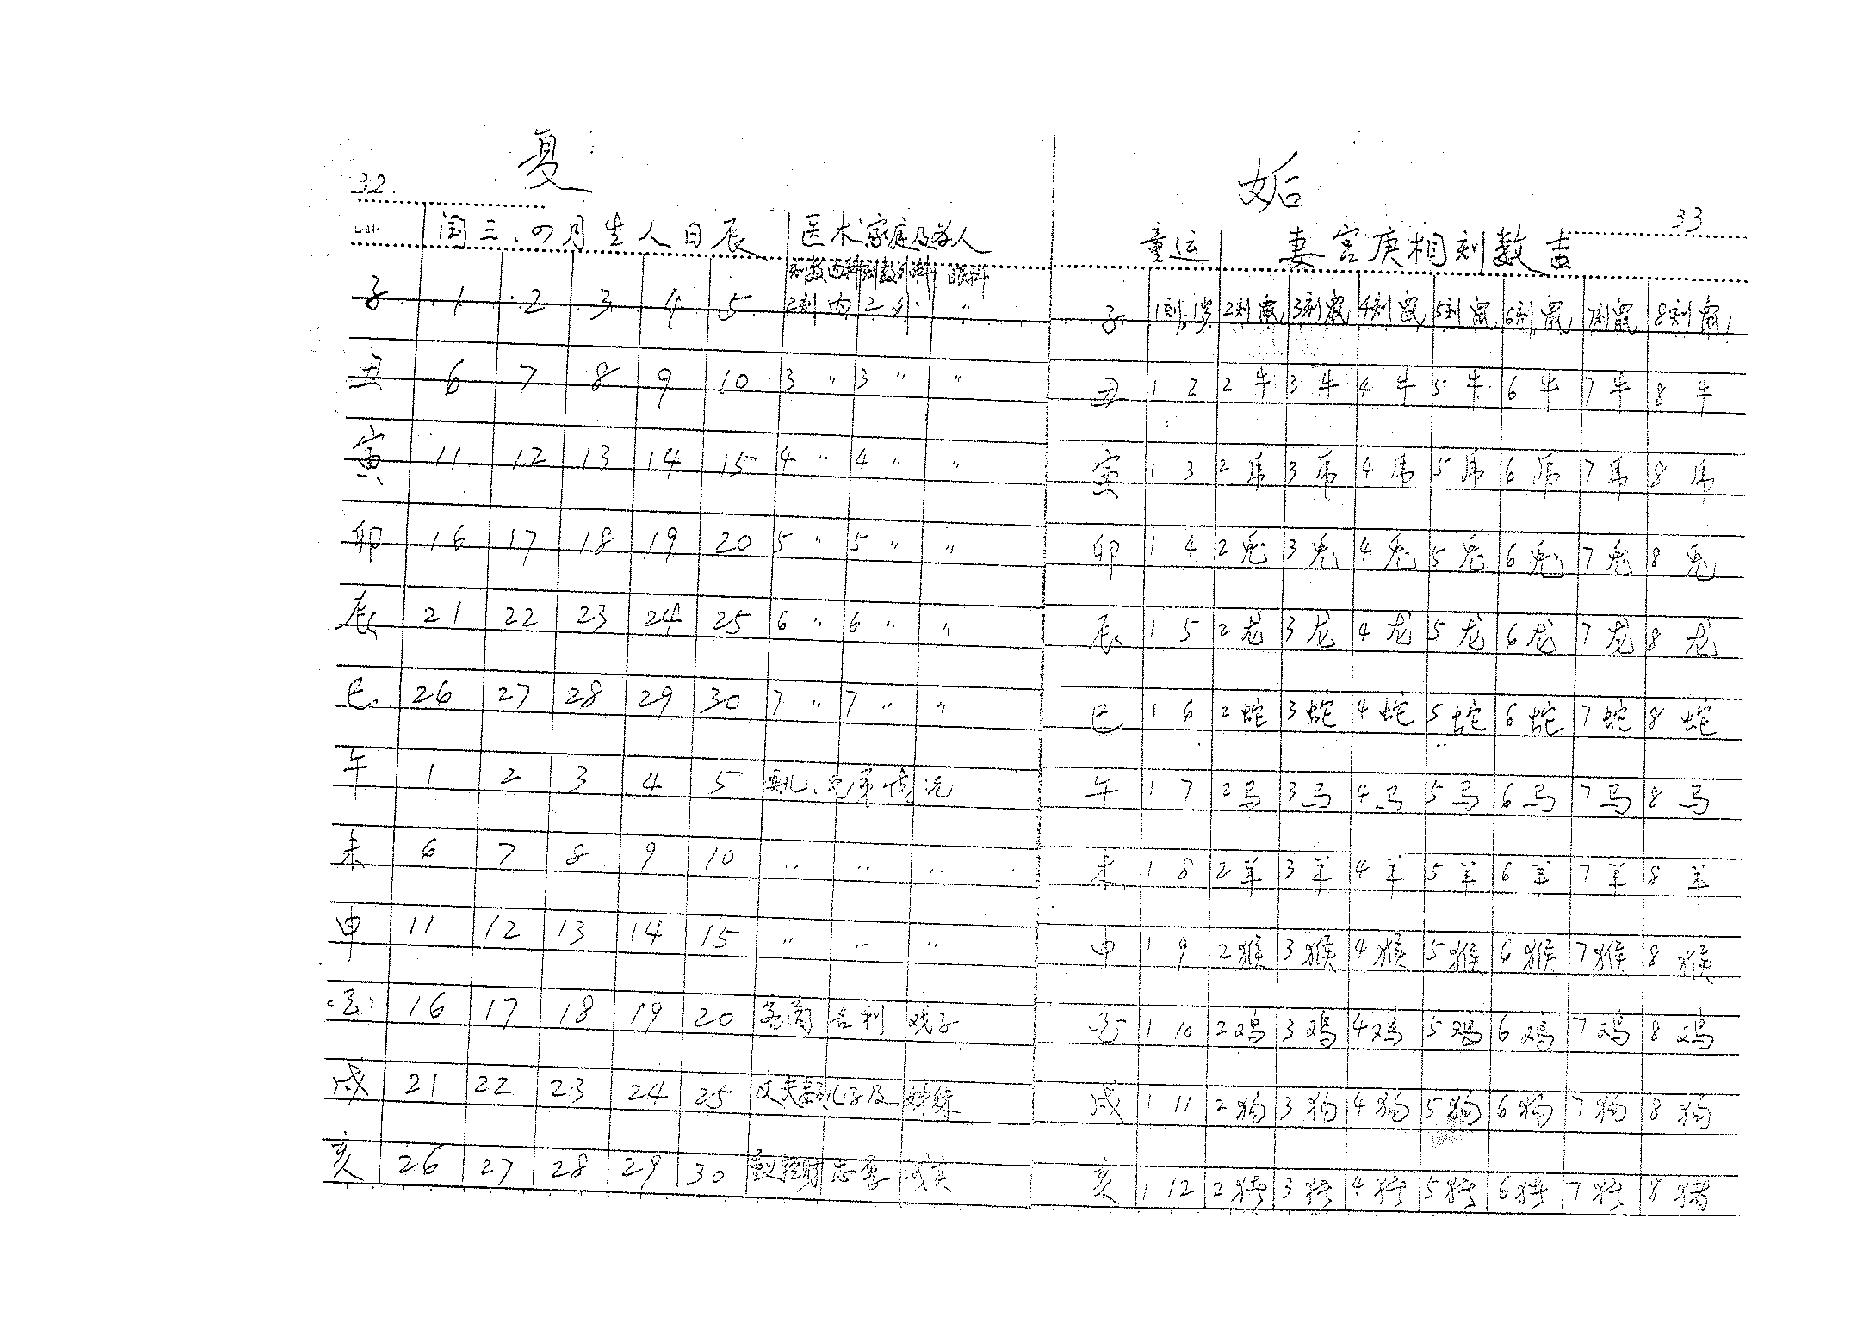 复
32.
闰三、の月生人日辰 医术家庭及为人
刻数 西科 刻数 外科 眼科
子 1 2 3 4 5 2刻 内 2 〃 〃
丑 6 7 8 9 10 3 〃 3 〃 〃
寅 11 12 13 14 15 4 〃 4 〃 〃
卯 16 17 18 19 20 5 〃 5 〃 〃
辰 21 22 23 24 25 6 〃 6 〃 〃
巳 26 27 28 29 30 7 〃 7 〃 〃
午 1 2 3 4 5 情况
未 6 7 8 9 10 〃 〃 〃
申 11 12 13 14 15 〃 〃 〃
16 17 18 19 20 名利 戏子
戌 21 22 23 24 25
亥 26 27 28 29 30
姤
33
童运 妻宫庚相刻数吉
子 1刻,1岁 2刻鼠 3刻鼠 4刻鼠 5刻鼠 6刻鼠 7刻鼠 8刻鼠
丑 1 2 2牛 3牛 4牛 5牛 6牛 7牛 8牛
寅 1 3 2虎 3虎 4虎 5虎 6虎 7虎 8虎
卯 1 4 2兔 3兔 4兔 5兔 6兔 7兔 8兔
辰 1 5 2龙 3龙 4龙 5龙 6龙 7龙 8龙
巳 1 6 2蛇 3蛇 4蛇 5蛇 6蛇 7蛇 8蛇
午 1 7 2马 3马 4马 5马 6马 7马 8马
未 1 8 2羊 3羊 4羊 5羊 6羊 7羊 8羊
申 1 9 2猴 3猴 4猴 5猴 6猴 7猴 8猴
酉 1 10 2鸡 3鸡 4鸡 5鸡 6鸡 7鸡 8鸡
戌 1 11 2狗 3狗 4狗 5狗 6狗 7狗 8狗
亥 1 12 2猪 3猪 4猪 5猪 6猪 7猪 8猪